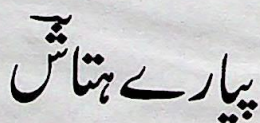 پیارے ہتاش